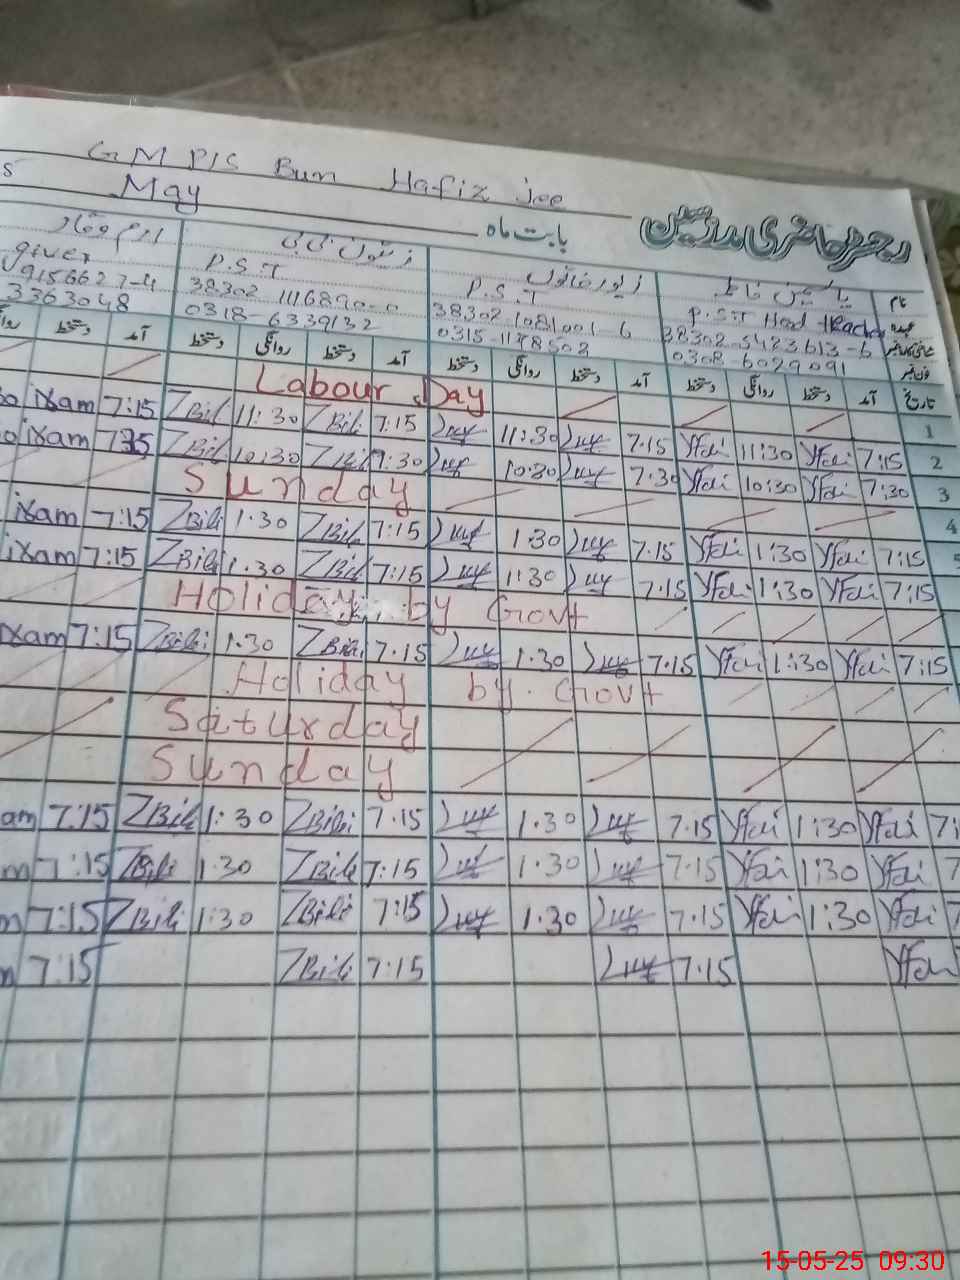 GMPIS Bum Hafiz Jee
s May
رجسٹر حاضری مدرسین بابت ماہ
نام یاسمین فاطمہ زیور خاتون زیتون بی بی ارم وقار
عہدہ P.S.T Head teacher P.S.T P.S.T giver
38302-5423613-6 38302-1081001-6 38302 1116890-0 9156627-4
0308-6029091 0315-1178502 0318-6339132 3363048
تاریخ آمد دستخط روانگی دستخط آمد دستخط روانگی دستخط آمد دستخط روانگی دستخط آمد دستخط
Labour Day 1
ixam 7:15 ZBili 11:30 ZBili 7:15 11:30 7:15 Yfai 11:30 Yfai 7:15 2
ixam ZBili 10:30 ZBili 7:30 10:30 7:30 Yfai 10:30 Yfai 7:30 3
Sunday 4
ixam 7:15 ZBili 1.30 ZBili 7:15 1:30 7:15 Yfai 1:30 Yfai 7:15 5
ixam 7:15 ZBili 1.30 ZBili 7:15 1:30 7:15 Yfai 1:30 Yfai 7:15
Holiday by Govt
ixam 7:15 ZBili 1.30 ZBili 7.15 1.30 7.15 Yfai 1:30 Yfai 7:15
Holiday by Govt
Saturday
Sunday
am 7:15 ZBili 1:30 ZBili 7.15 1.30 7.15 Yfai 1:30 Yfai 7:1
m 7:15 ZBili 1.30 ZBili 7:15 1.30 7.15 Yfai 1:30 Yfai 7
m 7:15 ZBili 1:30 ZBili 7:15 1.30 7.15 Yfai 1:30 Yfai 7
m 7:15 ZBili 7:15 7.15 Yfai
15-05-25 09:30